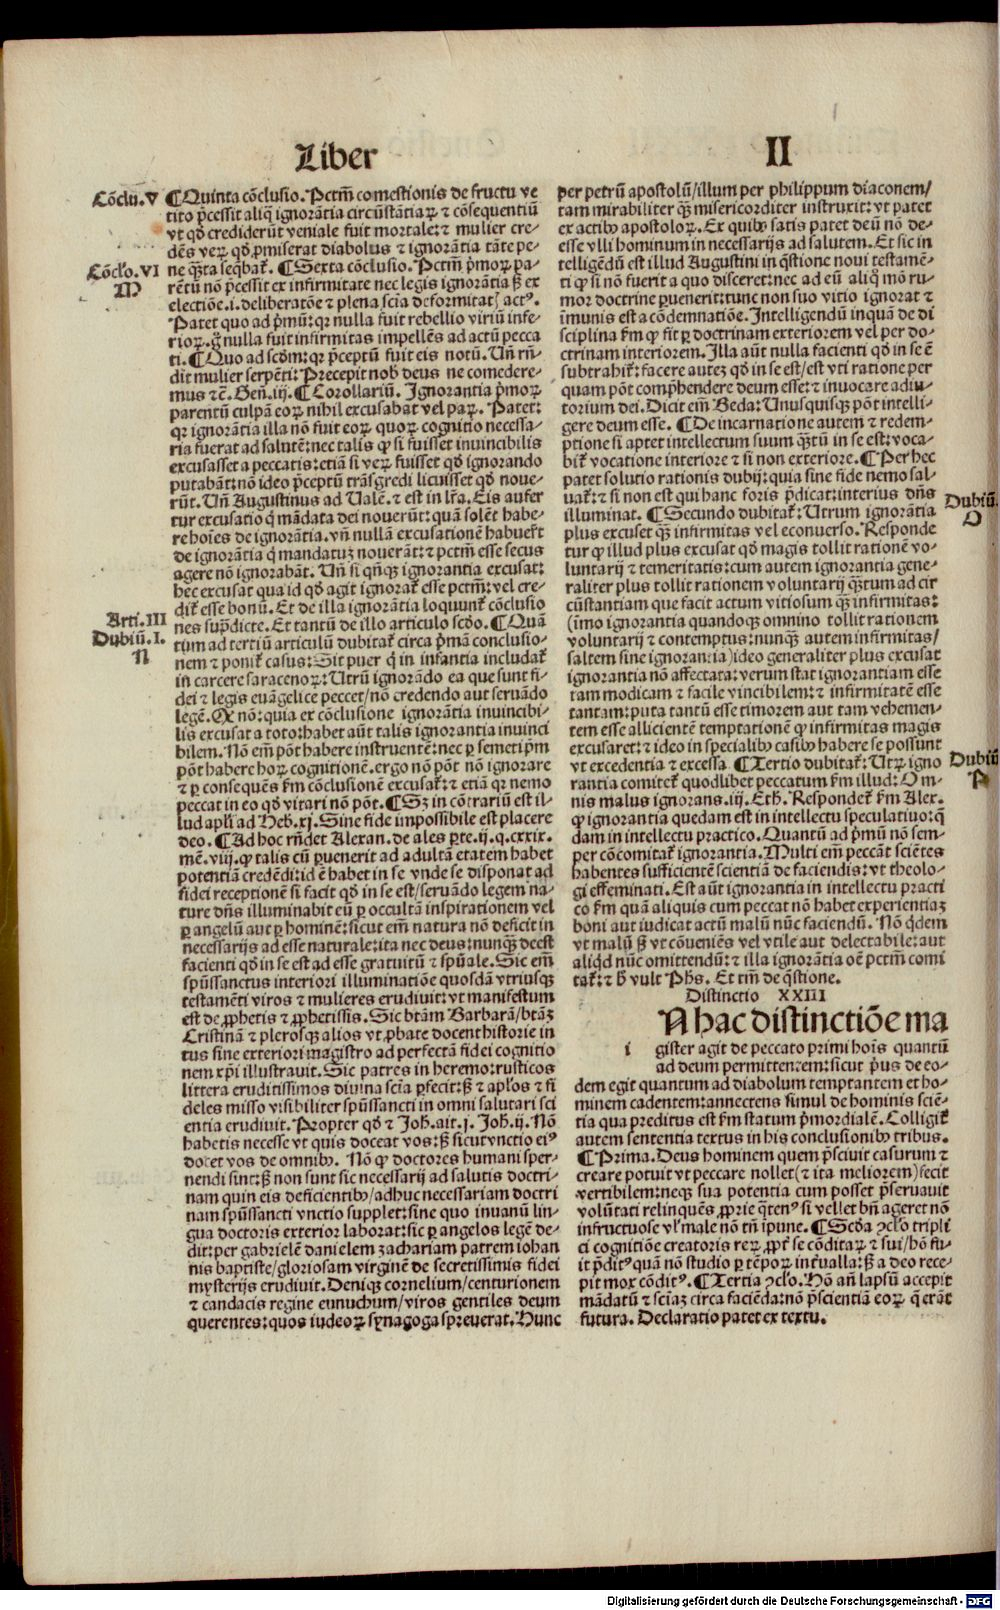 Liber II
Cõclu. V
¶Quinta cõclusio. Pctm̃ comestionis de fructu ve
tito p̃cessit aliq̃ ignorãtia circũstãtiaꝝ ⁊ cõsequentiũ
vt qđ crediderũt veniale fuit mortale: ⁊ mulier cre-
dẽs veꝝ qđ ꝓmiserat diabolus ⁊ ignorãtia tãte pe-
Cõclo. VI
M
ne q̃ta seq̃bat᷑. ¶Sexta cõclusio. Pctm̃ p̃moꝝ pa-
rẽtũ nõ p̃cessit ex infirmitate nec legis ignorãtia sꝫ ex
electiõe .i. deliberatõe ⁊ plena scĩa deformitatꝭ actꝰ.
Patet quo ad p̃mũ: qꝛ nulla fuit rebellio viriũ infe-
rioꝝ. g̊ nulla fuit infirmitas impellẽs ad actũ pecca
ti. ¶Quo ad scđm: qꝛ p̃ceptũ fuit eis notũ. Vñ rñ-
dit mulier serpẽti: Precepit nob̃ deus ne comedere-
mus ⁊c̃. Geñ. iij. ¶Corollariũ. Ignorantia p̃moꝝ
parentũ culpã eoꝝ nihil excusabat vel paꝝ. Patet:
qꝛ ignorãtia illa nõ fuit eoꝝ quoꝝ cognitio necessa-
ria fuerat ad salutẽ: nec talis ꝙ si fuisset inuincibilis
excusasset a peccatis: etiã si veꝝ fuisset qđ ignorando
putabãt: nõ ideo p̃ceptũ trãsgredi licuisset qđ noue-
rũt. Vñ Augustinus ad Valẽ. ⁊ est in lr̃a. Eis aufer
tur excusatio q̃ mãdata dei nouerũt: quã solẽt habe-
re hoĩes de ignorãtia. vñ nullã excusationẽ habuer̃t
de ignorãtia q̃ mandatuꝫ nouerãt: ⁊ pctm̃ esse secus
agere nõ ignorabãt. Vñ si qñqꝫ ignorantia excusat:
hec excusat qua id qđ agit ignorat᷑ esse pctm̃: vel cre-
dit᷑ esse bonũ. Et de illa ignorãtia loquunt᷑ cõclusio
Arti. III
Dubiũ. I.
N
nes sup̃dicte. Et tantũ de illo articulo scđo. ¶Quã
tum ad tertiũ articulũ dubitat᷑ circa p̃mã conclusio-
nem ⁊ ponit᷑ casus: Sit puer q̃ in infantia includat᷑
in carcere saracenoꝝ: Utrũ ignorãdo ea que sunt fi-
dei ⁊ legis euãgelice peccet/ nõ credendo aut seruãdo
legẽ. Qꝫ nõ: quia ex cõclusione ignorãtia inuincibi-
lis excusat a toto: habet aũt talis ignorantia inuinci
bilem. Nõ em̃ põt habere instruentẽ: nec ꝑ semetip̃m
põt habere hoꝝ cognitionẽ. ergo nõ põt nõ ignorare
⁊ ꝑ consequẽs fm̃ cõclusionẽ excusat᷑: ⁊ etiã qꝛ nemo
peccat in eo qđ vitari nõ põt. ¶Sꝫ in cõtrariũ est il-
lud apl̃i ad Heb̃. xj. Sine fide impossibile est placere
deo. ¶Ad hoc rñdet Alexan. de ales ꝑte. ij. q. cxxix.
mẽ. viij. ꝙ talis cũ ꝑuenerit ad adultã etatem habet
potentiã credẽdi: id ẽ habet in se vnde se disponat ad
fidei receptionẽ si facit qđ in se est/ seruãdo legem na-
ture dñs illuminabit eũ ꝑ occultã inspirationem vel
ꝑ angelũ aut ꝑ hominẽ: sicut em̃ natura nõ deficit in
necessarijs ad esse naturale: ita nec deus: nunqꝫ̃ deest
facienti qđ in se est ad esse gratuitũ ⁊ spũale. Sic em̃
spũssanctus interiori illuminatiõe quosdã vtriusqꝫ
testamẽti viros ⁊ mulieres erudiuit: vt manifestum
est de ꝓphetis ⁊ ꝓphetissis. Sic btãm Barbarã/ btãꝫ
Cristinã ⁊ plerosqꝫ alios vt ꝓbate docent historie in
tus sine exteriori magistro ad perfectã fidei cognitio
nem xp̃i illustrauit. Sic patres in heremo: rusticos
littera eruditissimos diuina scĩa ꝑfecit: sꝫ ⁊ apl̃os ⁊ fi
deles misso visibiliter spũssancti in omni salutari sci
entia erudiuit. Propter qđ ⁊ Joh̃. ait. j. Joh̃. ij. Nõ
habetis necesse vt quis doceat vos: sꝫ sicut vnctio eiꝰ
docet vos de omnibꝫ. Nõ ꝙ doctores humani sper-
nendi sint: sꝫ non sunt sic necessarij ad salutis doctri-
nam quin eis deficientibꝫ/ adhuc necessariam doctri
nam spũssancti vnctio supplet: sine quo inuanũ lin-
gua doctoris exterior laborat: sic ꝑ angelos legẽ de-
dit: per gabrielẽ danielem zachariam patrem iohan
nis baptiste/ gloriosam virginẽ de secretissimis fidei
mysterijs erudiuit. Deniqꝫ cornelium/ centurionem
⁊ candacis regine eunuchum/ viros gentiles deum
querentes: quos iudeoꝝ synagoga spreuerat. Hunc
per petrũ apostolũ/ illum per philippum diaconem/
tam mirabiliter qꝫ̃ misericorditer instruxit: vt patet
ex actibꝫ apostoloꝝ. Ex quibꝫ satis patet deũ nõ de-
esse vlli hominum in necessarijs ad salutem. Et sic in
telligẽdũ est illud Augustini in q̃stione noui testamẽ-
ti ꝙ si nõ fuerit a quo disceret: nec ad eũ aliq̃ mõ ru-
moꝛ doctrine ꝑuenerit: tunc non suo vitio ignorat ⁊
ĩmunis est a cõdemnatiõe. Intelligendũ inquã de di
sciplina fm̃ ꝙ fit ꝑ doctrinam exteriorem vel per do-
ctrinam interiorem. Illa aũt nulla facienti qđ in se ẽ
subtrahit᷑: facere autez qđ in se est/ est vti ratione per
quam põt comp̃hendere deum esse: ⁊ inuocare adiu-
torium dei. Dicit em̃ Beda: Unusquisqꝫ põt intelli-
gere deum esse. ¶De incarnatione autem ⁊ redem-
ptione si aptet intellectum suum qꝫ̃tũ in se est: voca-
bit᷑ vocatione interiore ⁊ si non exteriore. ¶Per hec
patet solutio rationis dubij: quia sine fide nemo sal-
Dubiũ.
O
uat᷑: ⁊ si non est qui hanc foris p̃dicat: interius dñs
illuminat. ¶Secundo dubitat᷑: Utrum ignorãtia
plus excuset qꝫ̃ infirmitas vel econuerso. Responde
tur ꝙ illud plus excusat qđ magis tollit rationẽ vo-
luntarij ⁊ temeritatis: cum autem ignorantia gene-
raliter plus tollit rationem voluntarij qꝫ̃tum ad cir
cũstantiam que facit actum vitiosum qꝫ̃ infirmitas:
(ĩmo ignorantia quandoqꝫ omnino tollit rationem
voluntarij ⁊ contemptus: nunqꝫ̃ autem infirmitas/
saltem sine ignorantia) ideo generaliter plus excusat
ignorantia nõ affectata: verum stat ignorantiam esse
tam modicam ⁊ facile vincibilem: ⁊ infirmitatẽ esse
tantam: puta tantũ esse timorem aut tam vehemen-
tem esse allicientem temptationẽ ꝙ infirmitas magis
excusaret: ⁊ ideo in specialibꝫ casibꝫ habere se possunt
Dubiũ
P
vt excedentia ⁊ excessa ¶Tertio dubitat᷑: Utꝝ igno
rantia comitet᷑ quodlibet peccatum fm̃ illud: Om-
nis malus ignorans. iij. Eth̃. Respondet᷑ fm̃ Alex.
ꝙ ignorantia quedam est in intellectu speculatiuo: q̃
dam in intellectu practico. Quantũ ad p̃mũ nõ sem-
per cõcomitat᷑ ignorantia. Multi em̃ peccãt sciẽtes
habentes sufficientẽ scientiã de faciendis: vt theolo-
gi effeminati. Est aũt ignorantia in intellectu practi
co fm̃ quã aliquis cum peccat nõ habet experientiaꝫ
boni aut iudicat actũ malũ nũc faciendũ. Nõ q̃dem
vt malũ sꝫ vt cõueniẽs vel vtile aut delectabile: aut
aliqđ nũc omittendũ: ⁊ illa ignorãtia oẽ pctm̃ comi
tat᷑: ⁊ h̃ vult Ph̃s. Et tm̃ de q̃stione.
Distinctio XXIII
i N hac distinctiõe ma
gister agit de peccato primi hoĩs quantũ
ad deum permittentem: sicut p̃us de eo-
dem egit quantum ad diabolum temptantem et ho-
minem cadentem: annectens simul de hominis sciẽ-
tia qua preditus est fm̃ statum p̃mordialẽ. Colligit᷑
autem sententia textus in his conclusionibꝫ tribus.
¶Prima. Deus hominem quem p̃sciuit casurum ⁊
creare potuit vt peccare nollet (⁊ ita meliorem) fecit
vertibilem: neqꝫ sua potentia cum posset p̃seruauit
volũtati relinquẽs ꝓprie q̃tenꝰ si vellet bñ ageret nõ
infructuose vl᷑ male nõ tñ ĩpune. ¶Scđa ꝯclo̊ tripli
ci cognitiõe creatoris reꝝ ꝓpt᷑ se cõditaꝝ ⁊ sui/ hõ fu-
it p̃ditꝰ quã nõ studio ꝑ tẽpoꝝ int᷑ualla: sꝫ a deo rece-
pit mox cõditꝰ. ¶Tertia ꝯclo̊. Hõ añ lapsũ accepit
mãdatũ ⁊ sciaꝫ circa faciẽda: nõ p̃scientiã eoꝝ q̃ erãt
futura. Declaratio patet ex textu.
Digitalisierung gefördert durch die Deutsche Forschungsgemeinschaft - DFG